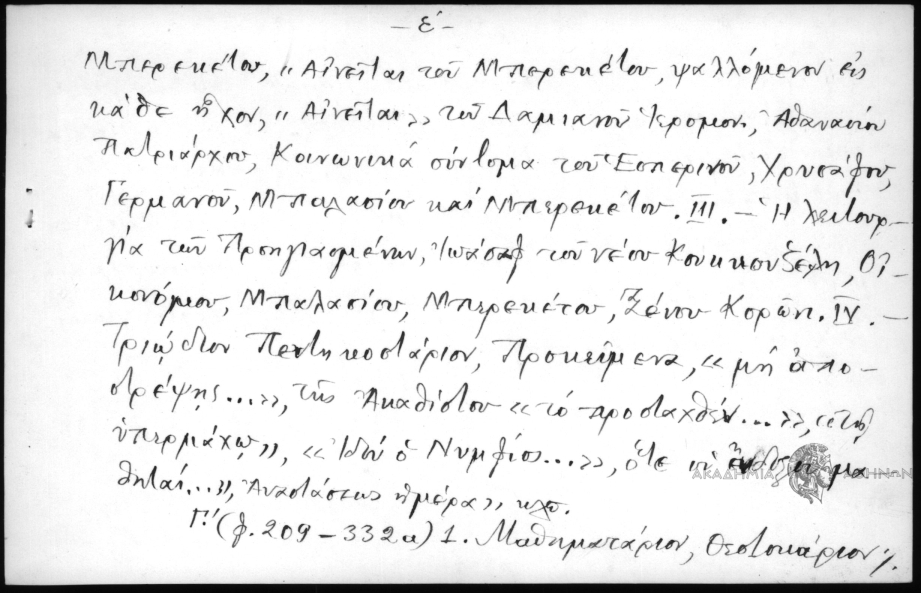 – ε΄ –
Μπερεκέτου, „Αἰνεῖται τοῦ Μπερεκέτου, ψαλλόμενον εἰς
κάθε ἦχον, „Αἰνεῖται» τοῦ Δαμιανοῦ Ἱερομον., Ἀθανασίου
Πατριάρχου, Κοινωνικά σύντομα τοῦ Ἑσπερινοῦ, Χρυσάφου,
Γερμανοῦ, Μπαλασίου καί Μπερεκέτου. III. – Ἡ λειτουρ-
γία τῶν Προηγιασμένων, Ἰωάσαφ τοῦ νέου Κουκκουζέλη, Οἰ-
κονόμου, Μπαλασίου, Μπερεκέτου, Ξένου Κορώνη. IV. –
Τριῴδιον Πεντηκοστάριον, Προκείμενα, «μή ἀπο-
στρέψῃς...», τῆς Ἀκαθίστου «τό προσταχθέν...», «τῇ
ὑπερμάχῳ», «Ἰδού ὁ Νυμφίος...», ὅτε οἱ ἔνδοξοι μα
θηταί...», Ἀναστάσεως ἡμέρα» κλπ.
Γ΄. (φ. 209 – 332α) 1. Μαθηματάριον, Θεοτοκάριον ·/.
ΑΚΑΔΗΜΙΑ ΑΘΗΝΩΝ